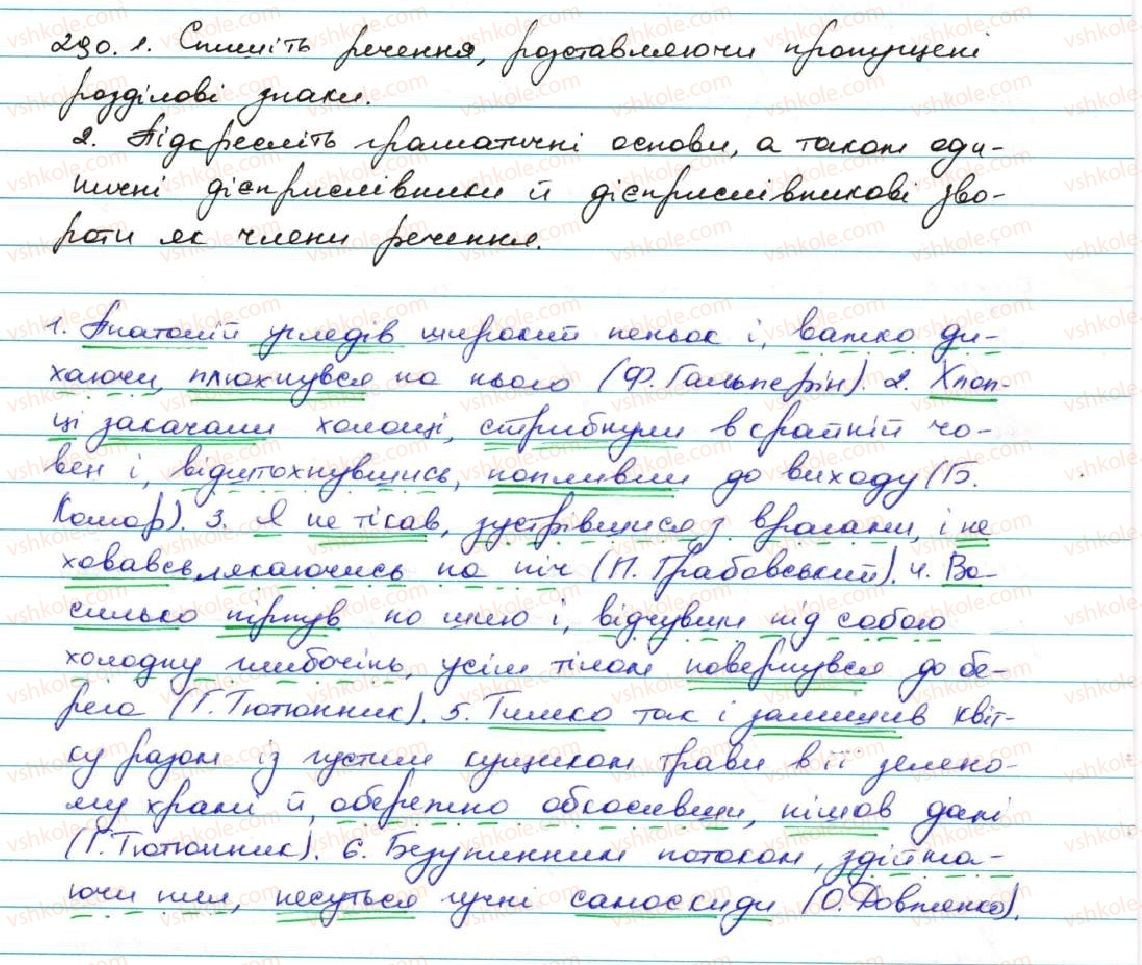 290. 1. Спишіть речення, розставляючи пропущені
розділові знаки.
2. Підкресліть граматичні основи, а також оди-
ничні дієприслівники й дієприслівникові зво-
роти як члени речення.
1. Анатолій угледів широкий пеньок і, важко ди-
хаючи, плюхнувся на нього (Ф. Гальперін). 2. Хлоп-
ці закачали холоші, стрибнули в крайній чо-
вен і, відштохнувшись, попливли до виходу (Б.
Комар). 3. Я не тікав, зустрівшися з врагами, і не
ховавсь, лякаючись на піч (П. Грабовський). 4. Ва-
силько пірнув по шию і, відчувши під собою
холодну глибочінь, усім тілом повернувся до бе-
рега (Г. Тютюнник). 5. Тимко так і залишив квіт-
ку разом із густим кущиком трави в її зелено-
му храмі й, обережно обкосивши, пішов далі
(Г. Тютюнник). 6. Безупинним потоком, здійма-
ючи пил, несуться гучні самоскиди (О. Довженко).
vshkole.com